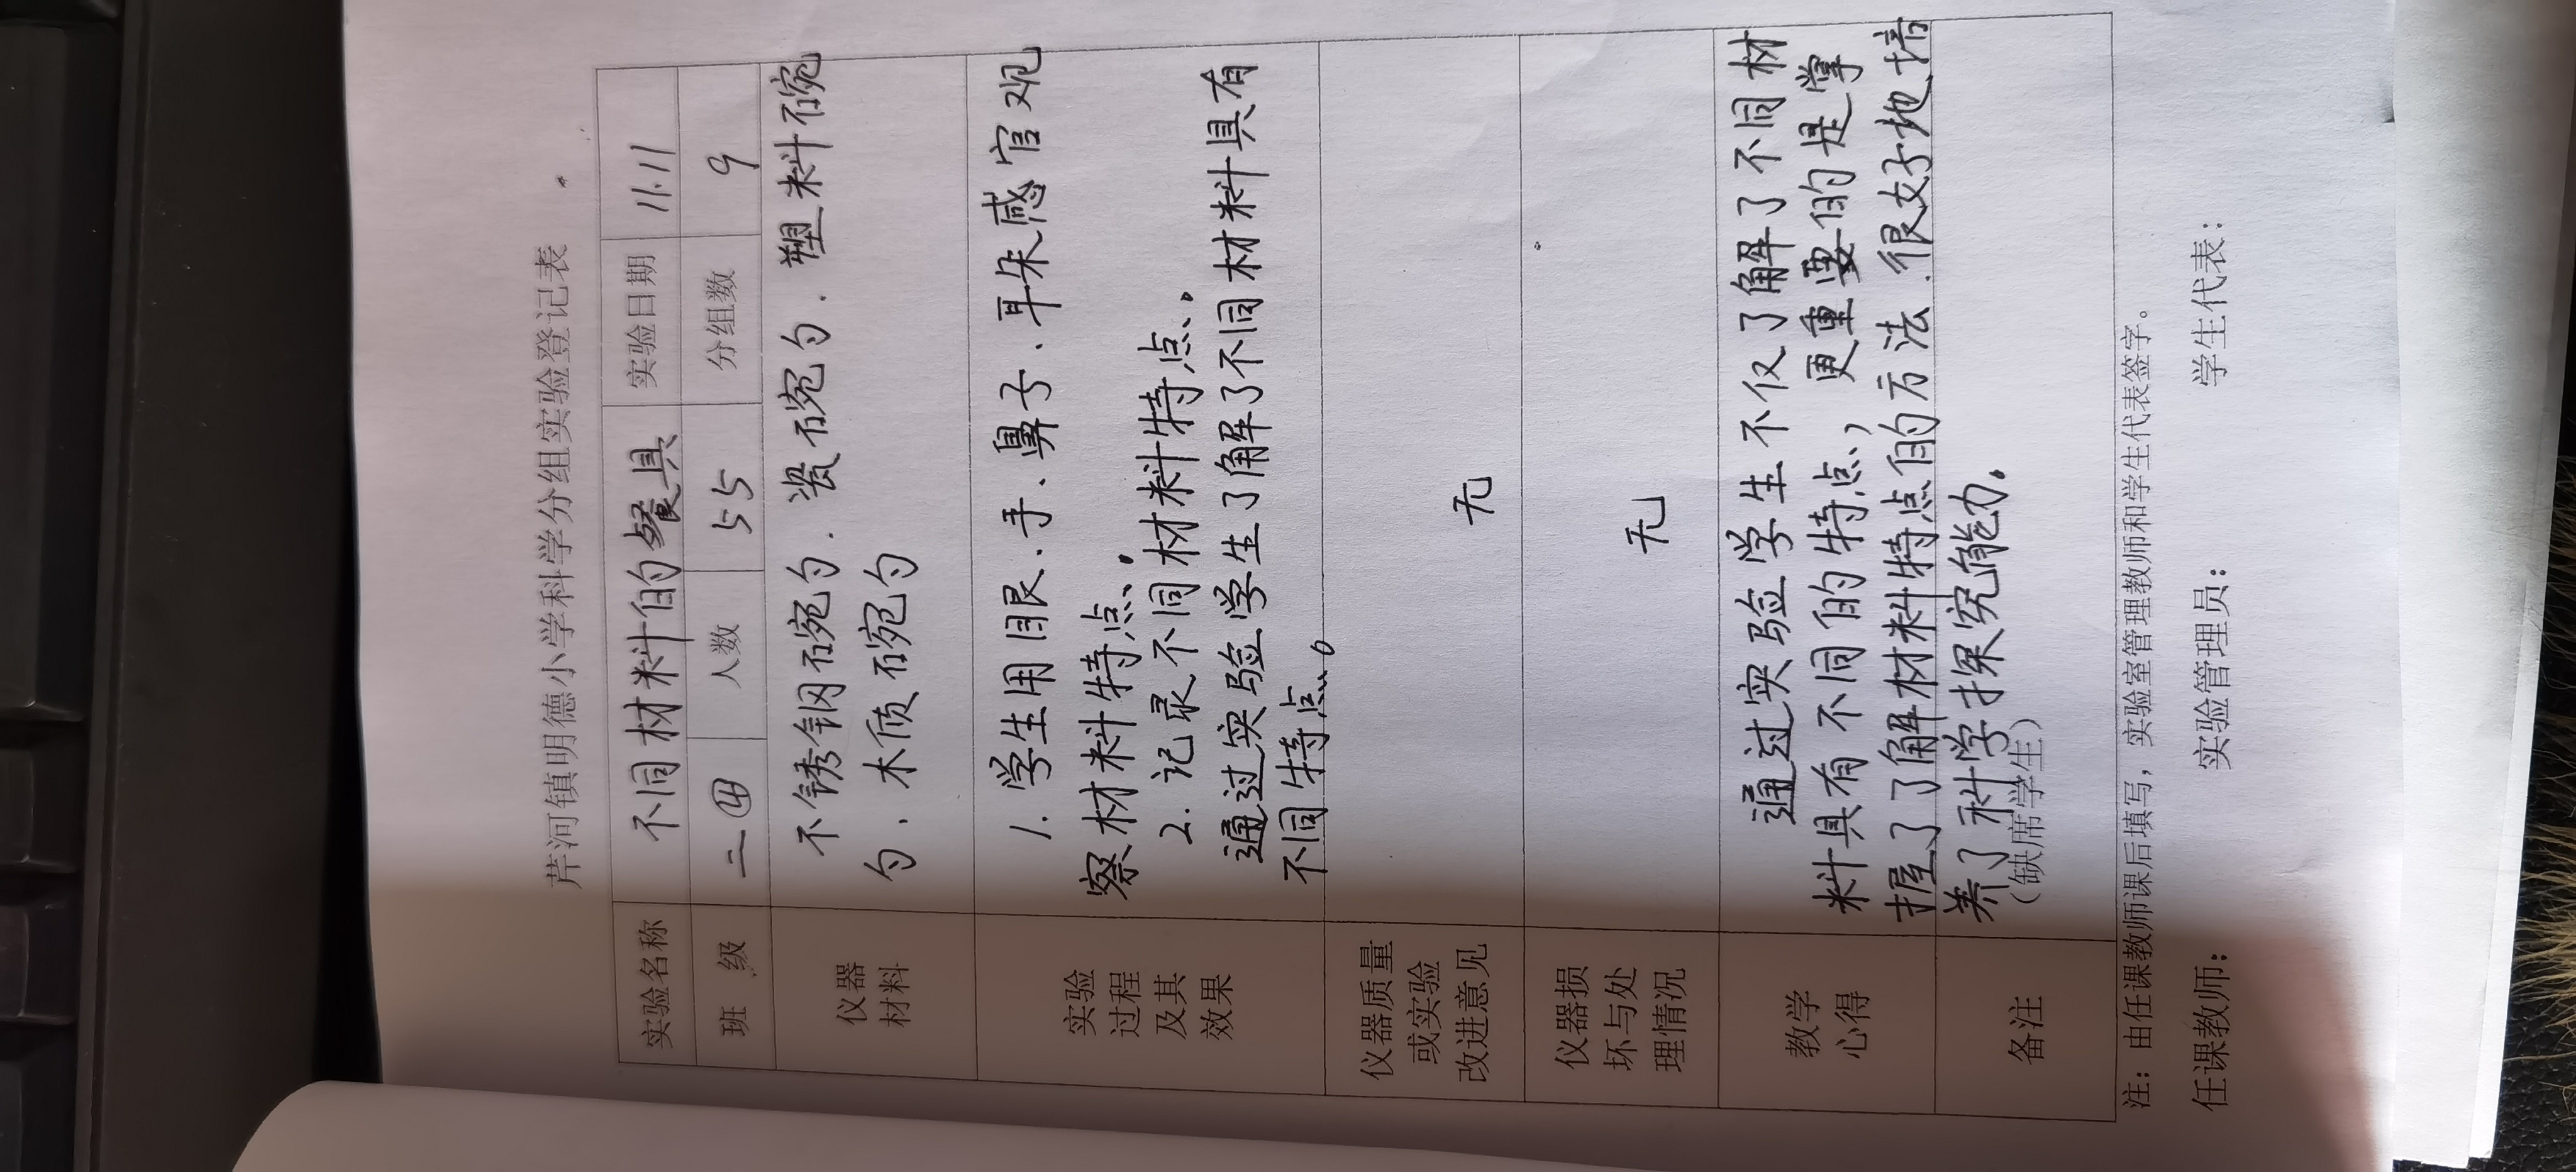 芹河镇明德小学科学分组实验登记表
实验名称 不同材料的餐具 实验日期 11.11
班级 二④ 人数 55 分组数 9
仪器
材料
不锈钢碗勺.瓷碗勺.塑料碗
勺.木质碗勺
实验
过程
及其
效果
1.学生用眼、手、鼻子、耳朵感官观
察材料特点.
2.记录不同材料特点.
通过实验学生了解了不同材料具有
不同特点。
仪器质量
或实验
改进意见
无
仪器损
坏与处
理情况
无
教学
心得
通过实验学生不仅了解了不同材
料具有不同的特点,更重要的是掌
握了了解材料特点的方法.很好地培
养了科学探究能力.
备注
(缺席学生)
注：由任课教师课后填写，实验室管理教师和学生代表签字。
任课教师： 实验管理员： 学生代表：